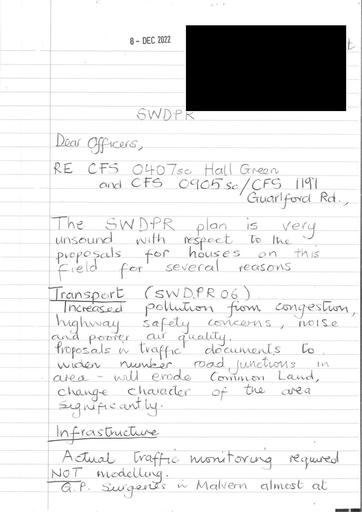 8 - DEC 2022
t
SWDPR
Dear Officers,
RE CFS 0407sc Hall Green
and CFS 0905sc/CFS 1191
Guarlford Rd.,
The SWDPR plan is very
unsound with respect to the
proposals for houses on this
field for several reasons
Transport (SWDPR 06)
Increased pollution from congestion,
highway safety concerns, noise
and poorer air quality.
Proposals in traffic documents to
widen number road junctions in
area - will erode Common Land,
change character of the area
significantly.
Infrastructure
Actual traffic monitoring required
NOT modelling.
G.P. Surgeries in Malvern almost at